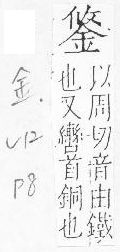 鋚
以周切音由鐵
也又轡首銅也
金.
V12
P8